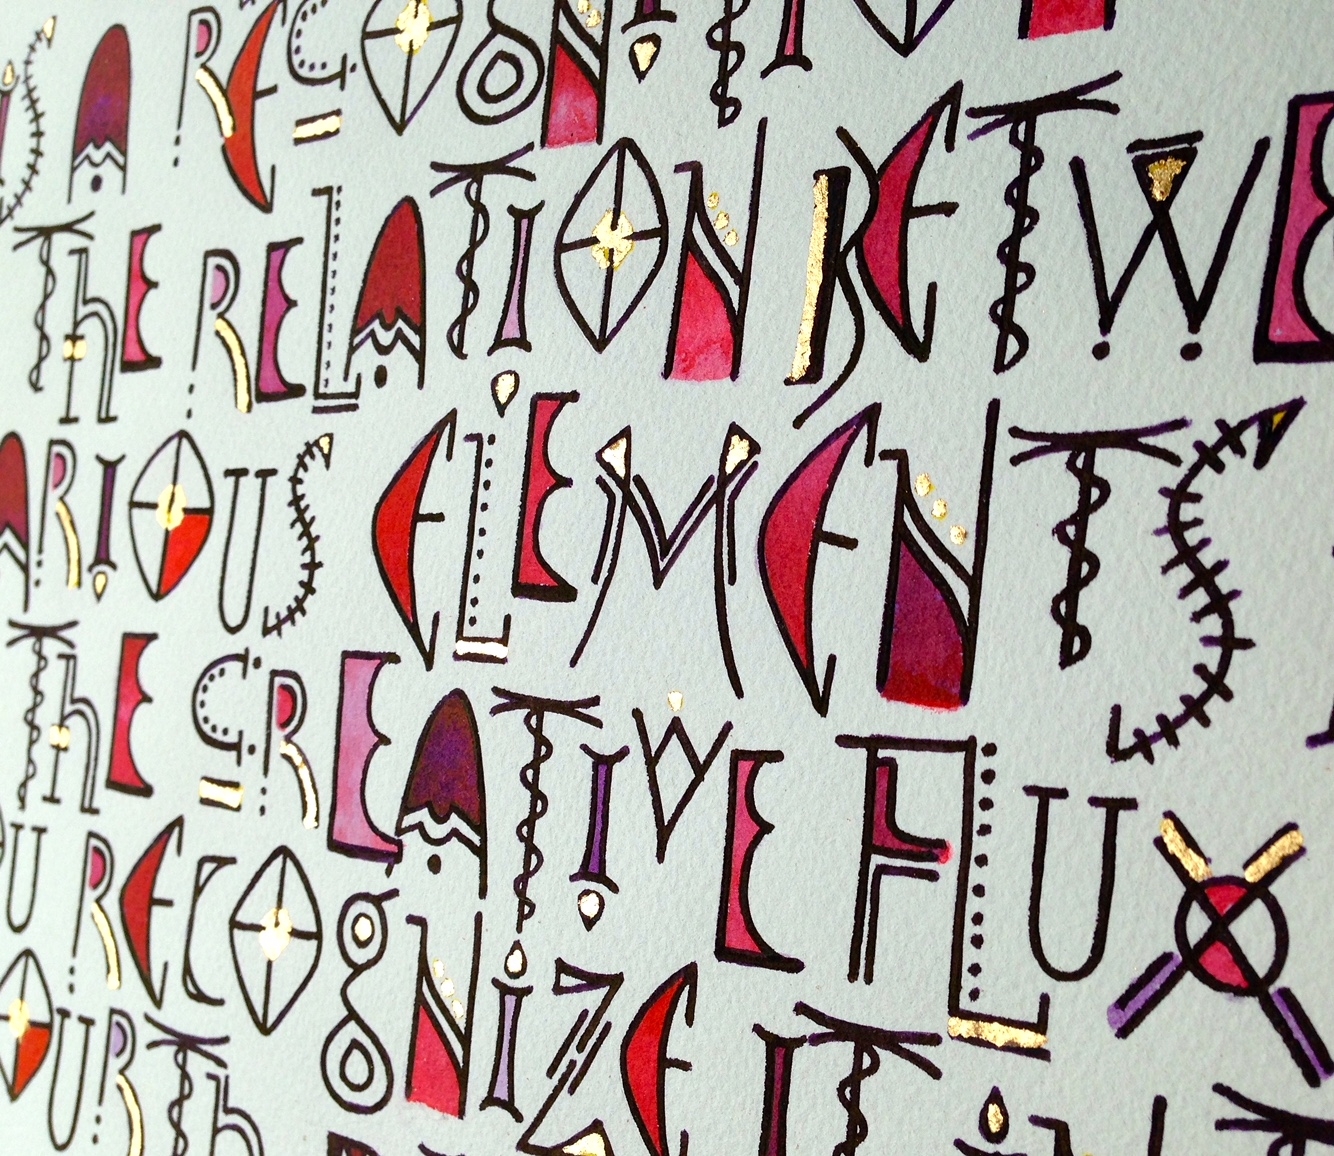 A RECOGNITION
THE RELATION BETWE
ARIOUS ELEMENTS
THE CREATIVE FLUX
U RECOGNIZE IT
OURTH